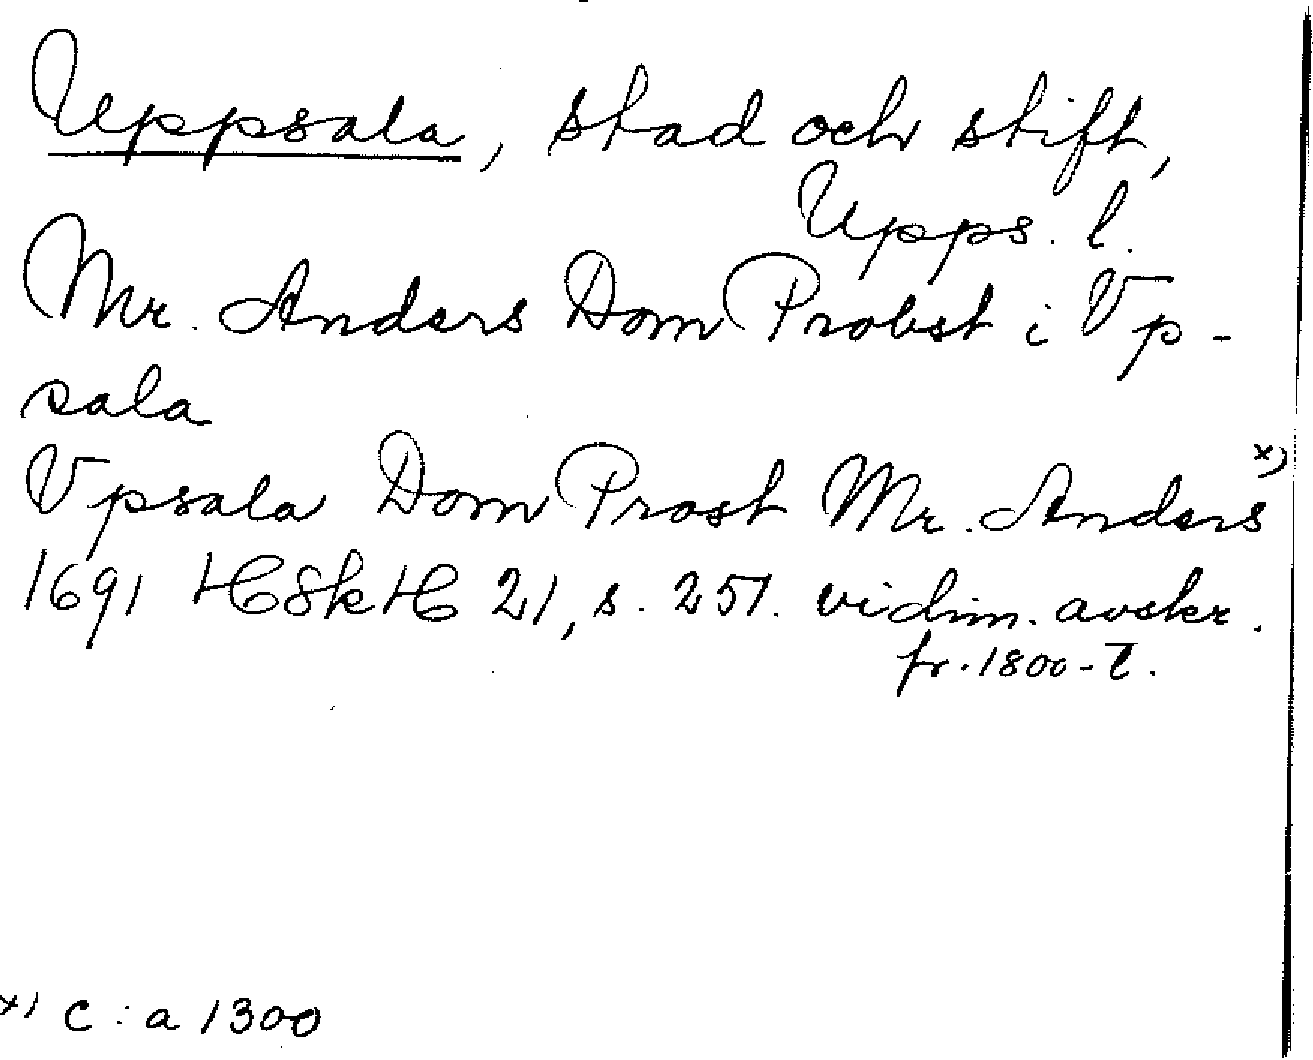 Uppsala, stad och stift,
Upps. l.
Mr. Anders Dom Probst i Vp-
sala
Vpsala Dom Prost Mr. Anders x)
1691 HSkH 21, s. 251. vidim. avskr.
fr. 1800-t.
x) c:a 1300